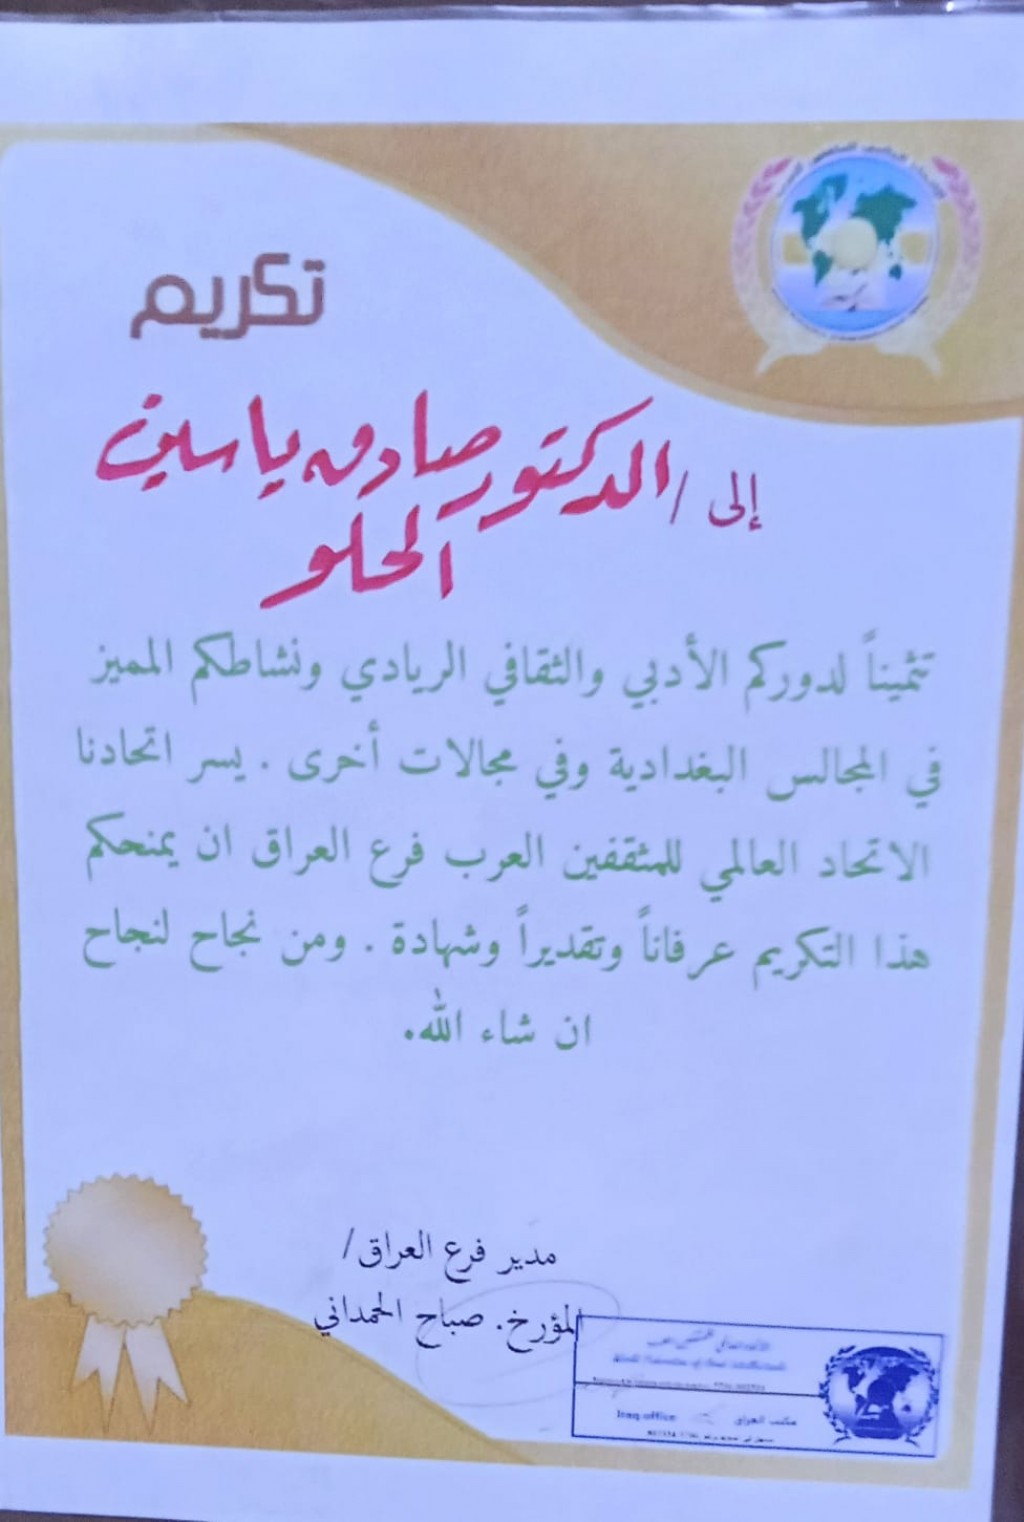 تكريم
إلى / الدكتور صادق ياسين
الحلو
تثميناً لدوركم الأدبي والثقافي الريادي ونشاطكم المميز
في المجالس البغدادية وفي مجالات أخرى . يسر اتحادنا
الاتحاد العالمي للمثقفين العرب فرع العراق ان يمنحكم
هذا التكريم عرفاناً وتقديراً وشهادة . ومن نجاح لنجاح
ان شاء الله.
مدير فرع العراق/
المؤرخ. صباح الحمداني
Iraq office
مكتب العراق